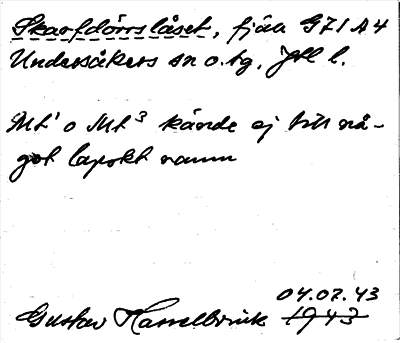 Skarfdörrslåset, fjäll G71 A4
Undersåkers sn o. tg, Jtl l.
Mt¹ o Mt³ kände ej till nå-
got lapskt namn
04.07.43
Gustav Hasselbrink 1943